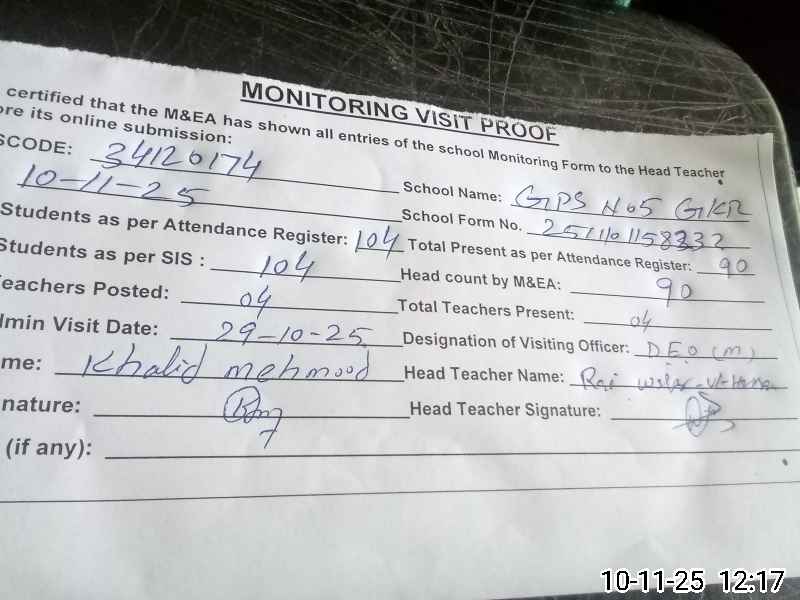 MONITORING VISIT PROOF
certified that the M&EA has shown all entries of the school Monitoring Form to the Head Teacher
ore its online submission:
SCODE: 34120174 School Name: GPS No5 GKR
10-11-25 School Form No.
Students as per Attendance Register: 104 Total Present as per Attendance Register: 90
Students as per SIS : 104 Head count by M&EA: 90
eachers Posted: 04 Total Teachers Present: 04
dmin Visit Date: 29-10-25 Designation of Visiting Officer: DEO (M)
me: Khalid mehmood Head Teacher Name: Rai
nature: Head Teacher Signature:
(if any):
10-11-25 12:17